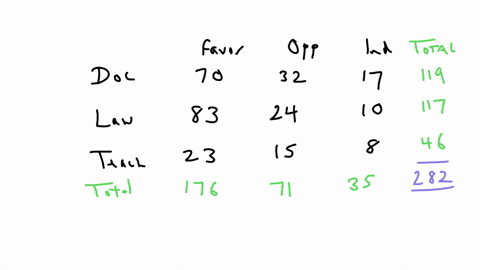 Favor Opp Ind TOTAL
Doc 70 32 17 119
Law 83 24 10 117
Teach 23 15 8 46
Total 176 71 35 282